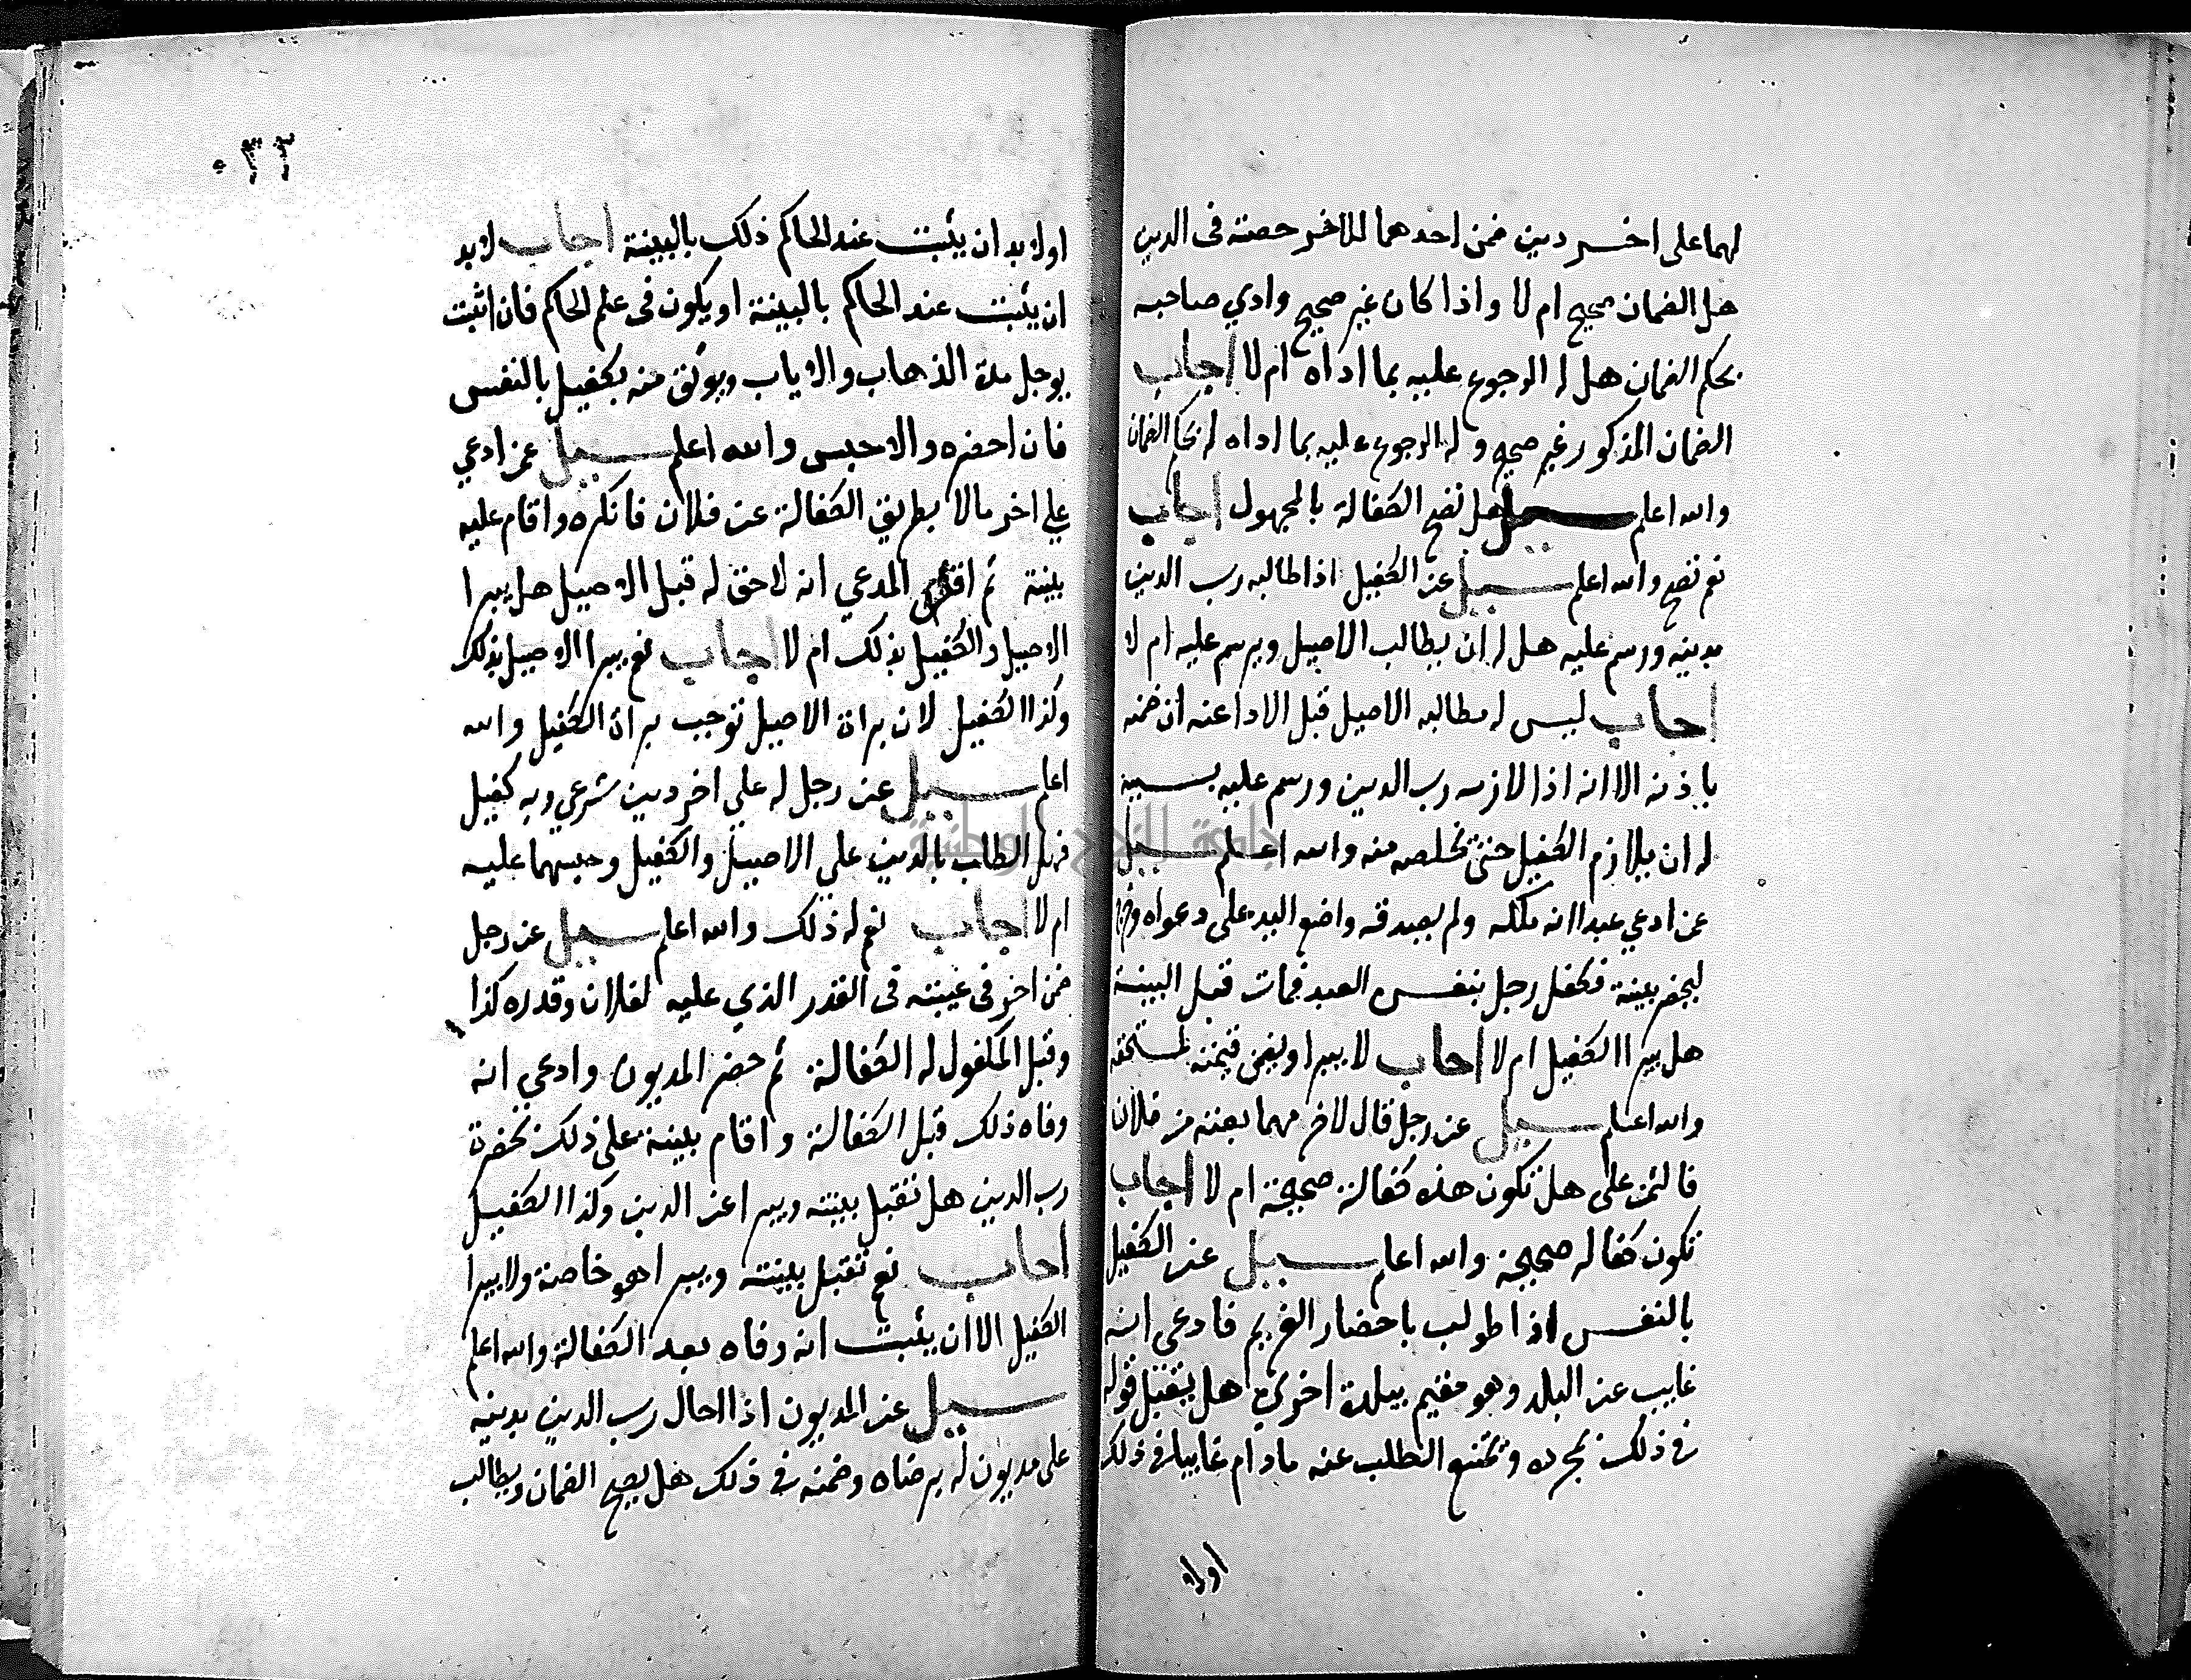 لهما على اخر دين ضمن احدهما للاخر حصته فى الدين
هل الضمان صحيح ام لا واذا كان غير صحيح وادي صاحبه
بحكم الضمان هل له الرجوع عليه بما اداه ام لا اجاب
الضمان المذكور غير صحيح وله الرجوع عليه بما اداه له بحكم الضمان
والله اعلم سيل هل تصح الكفالة بالمجهول اجاب
نعم تصح والله اعلم سيل عن الكفيل اذا طالبه رب الدين
بدينه ورسم عليه هل له ان يطالب الاصيل ويرسم عليه ام لا
اجاب ليس له مطالبه الاصيل قبل الادا عنه ان ضمنه
باذنه الا انه اذا لازمه رب الدين ورسم عليه بسببه
له ان يلازم الكفيل حتى تخلصه منه والله اعلم سيل
عن ادعي عبدا انه ملكه ولم يصدقه واضع اليد على دعواه
ليحضر بينة فكفل رجل بنفس العبد فمات قبل البينة
هل يبرا الكفيل ام لا اجاب لا يبرا ويضمن قيمته لمستحقه
والله اعلم سيل عن رجل قال لاخر مهما بعته من فلان
فالثمن على هل تكون هذه كفالة صحيحة ام لا اجاب
تكون كفاله صحيحة والله اعلم سيل عن الكفيل
بالنفس اذا طولب باحضار الغريم فادعى انه
غايب عن البلد وهو مقيم ببلدة اخري هل يقبل قوله
فى ذلك بمجرده ويمتنع الطلب عنه مادام غايبا فى ذلك
اولا
٠٣٣
اولا بد ان يثبت عند الحاكم ذلك بالبينة اجاب لا بد
ان يثبت عند الحاكم بالبينة او يكون فى علم الحاكم فان اثبت
يوجل مدة الذهاب والاياب ويوثق منه بكفيل بالنفس
فان احضره والا حبس والله اعلم سيل عمن ادعي
علي اخر مالا بطريق الكفالة عن فلان فانكره واقام عليه
بينة ثم اقر المدعي انه لا حق له قبل الاصيل هل يبرا
الاصيل والكفيل بذلك ام لا اجاب نعم يبرا الاصيل بذلك
وكذا الكفيل لان براة الاصيل توجب براة الكفيل والله
اعلم سيل عن رجل له علي اخر دين شرعي وبه كفيل
فهل الطاب بالدين علي الاصيل والكفيل وحبسهما عليه
ام لا اجاب نعم له ذلك والله اعلم سيل عن رجل
ضمن اخر فى غيبته فى القدر الذي عليه لفلان وقدره كذا
وقبل المكفول له الكفالة ثم حضر المديون وادعي انه
وفاه ذلك قبل الكفالة واقام بينة على ذلك بحضرة
رب الدين هل تقبل بينته ويبرا عن الدين وكذا الكفيل
اجاب نعم تقبل بينته ويبرا هو خاصة ولا يبرا
الكفيل الا ان يثبت انه وفاه بعد الكفالة والله اعلم
سيل عن المديون اذا احال رب الدين بدينه
على مديون له برضاه وضمنه فى ذلك هل يصح الضمان ويطالب